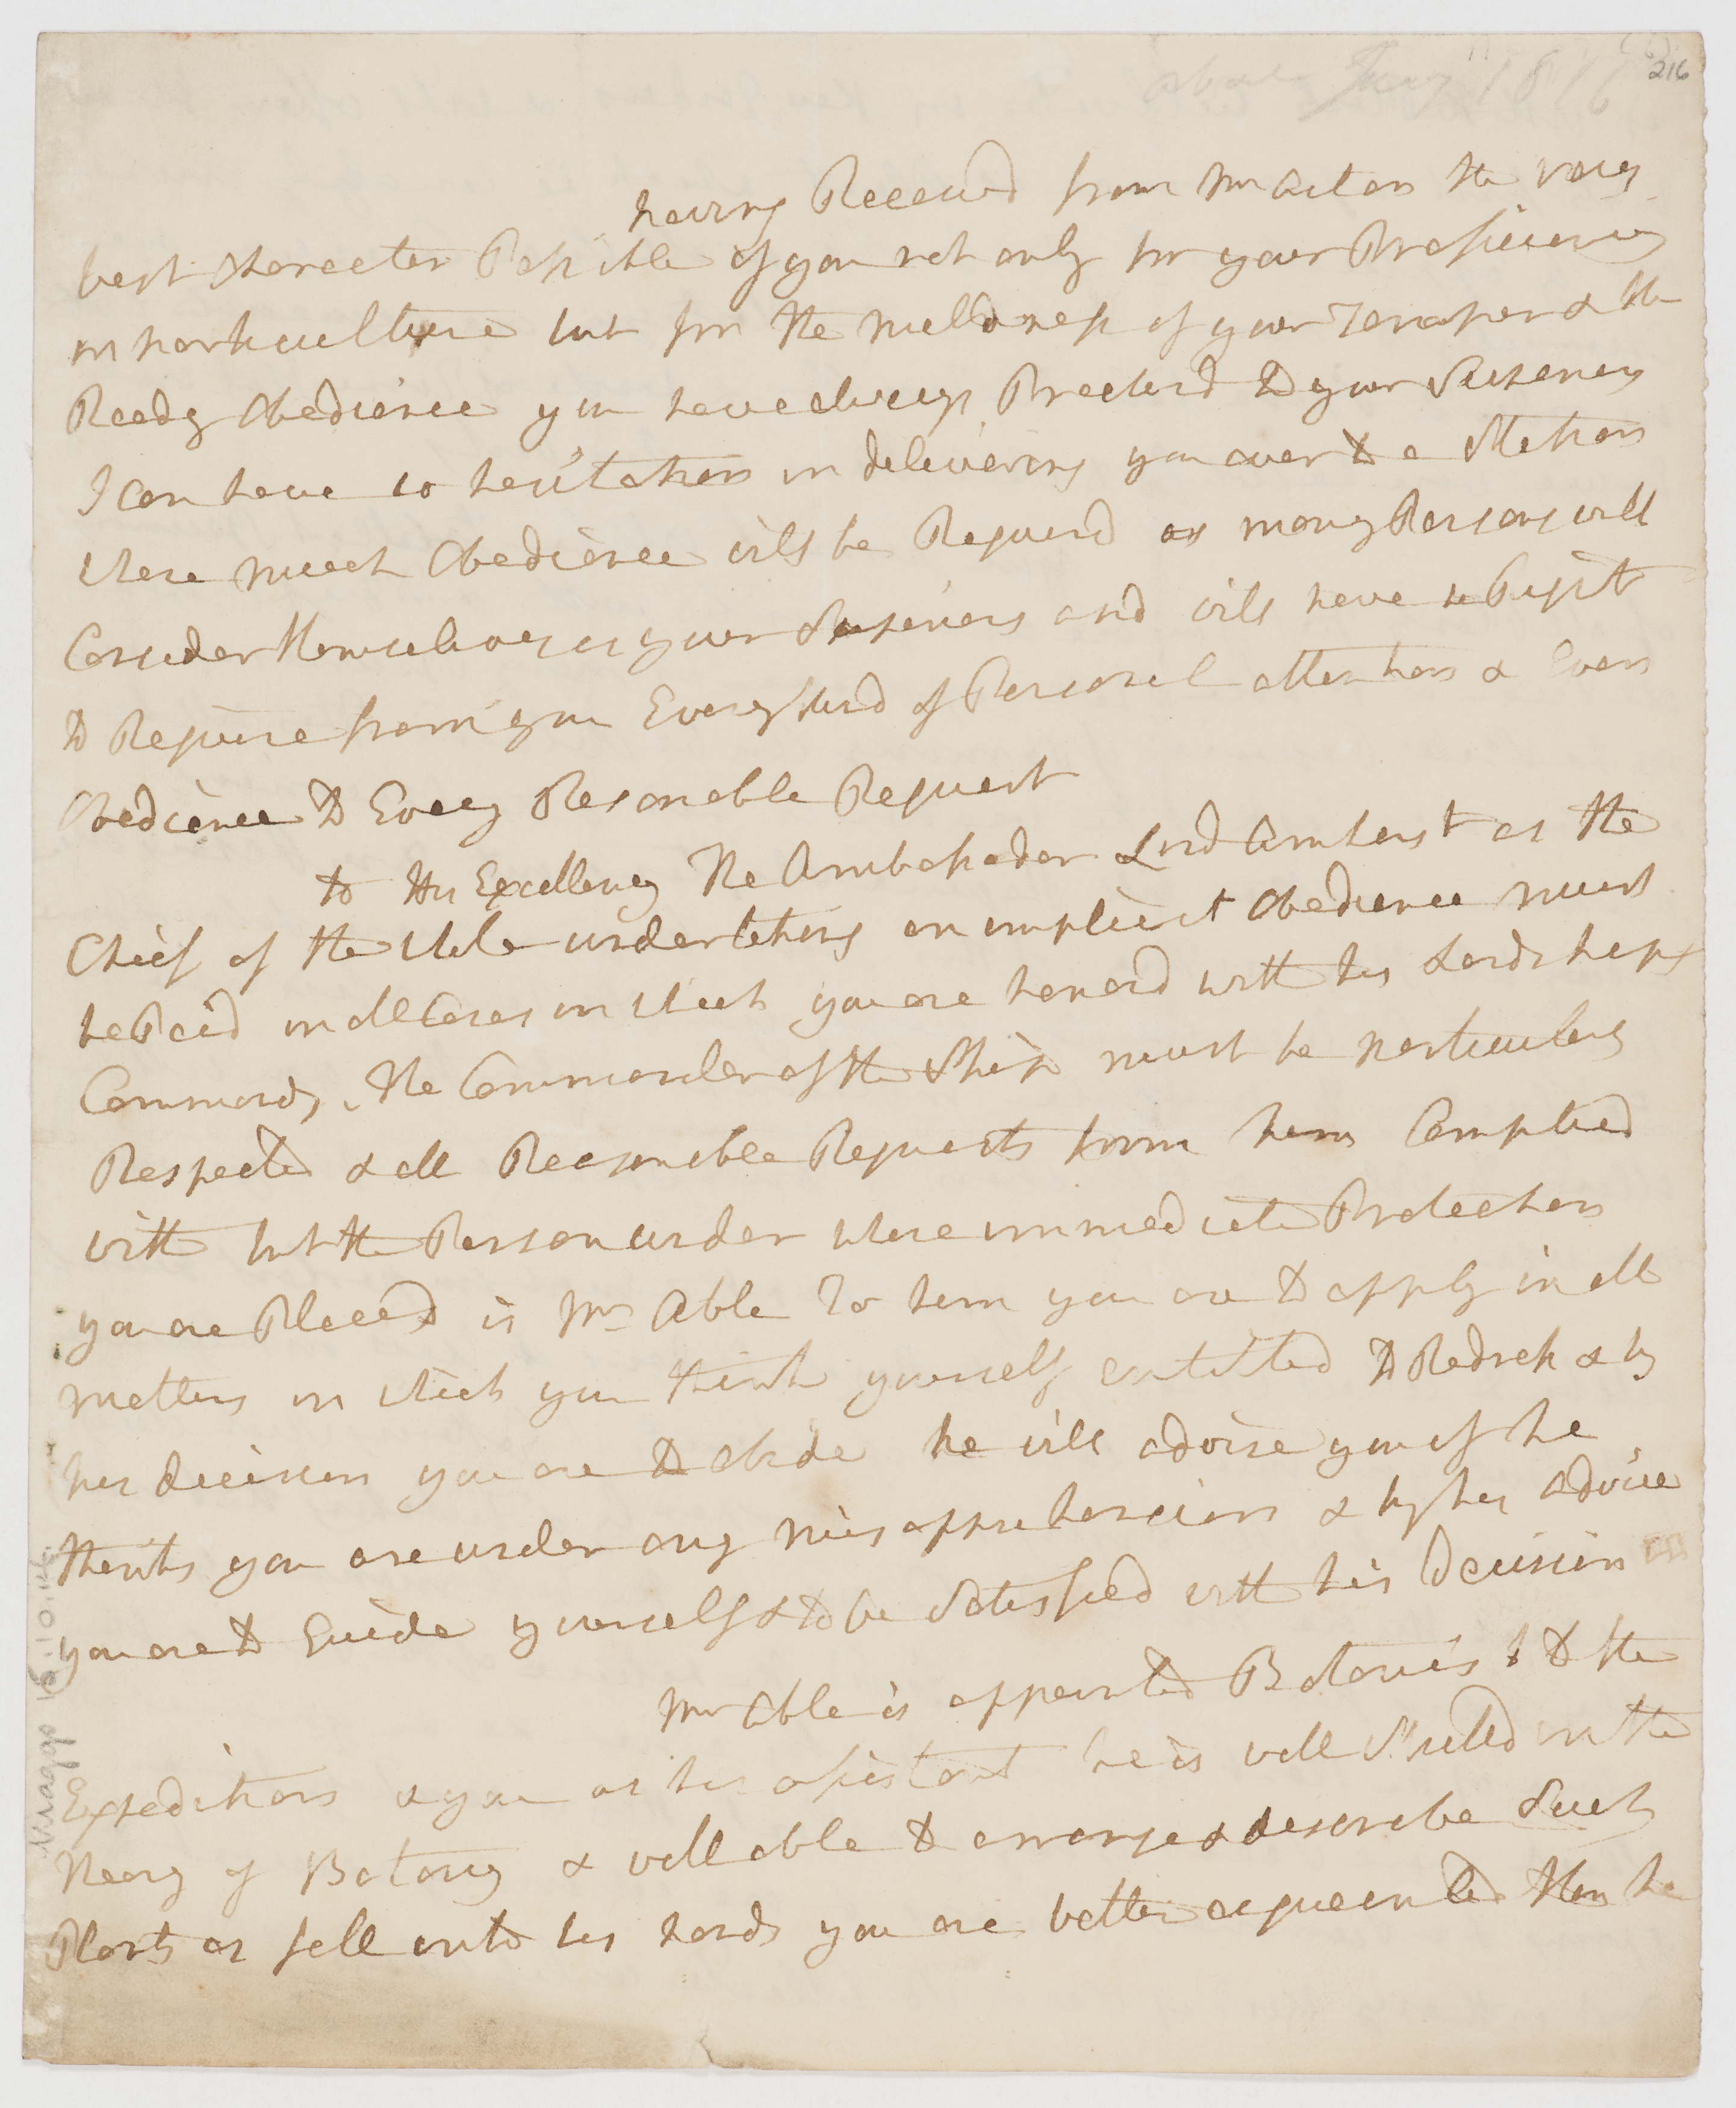 about Jany 1816
216
having Receivd from Mr Aiton the very
best Character Possible of you not only for your Proficiency
in horticulture but for the mildness of your Temper & the
Ready Obedience you have always Practisd to your Superiors
I can have no hesitation in delivering you over to a Station
where much Obedience will be Requird as many Persons will
Consider themselves as your Superiors and will have a Right
to Require from you Every kind of Personal attention & Even
Obedience to Every Resonable Request
to His Excellency The Ambassador Lord Amherst as the
Chief of the whole undertaking an implicit Obedience must
be Paid in all Cases in which you are honord with his Lordships
Commands, The Commander of the Ship must be particularly
Respected & all Reasonable Requests from him Complied
with but the Person under whose immediate Protection
you are Placed is Mr Able To him you are to apply in all
matters in which you think yourself entitled to Redress & by
his decision you are to abide he will advise you if he
thinks you are under any misapprehension & by his advice
you are to Guide yourself & to be Satisfied with his Decision
Mr Able is appointed Botanist to the
Expedition & you as his assistant he is well Skilled in the
Theory of Botany & well able to arrange & describe Such
Plants as fall into his hands you are better acquainted than he